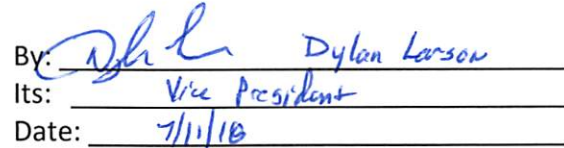 By: Dylan Larson
Its: Vice President
Date: 7/11/18